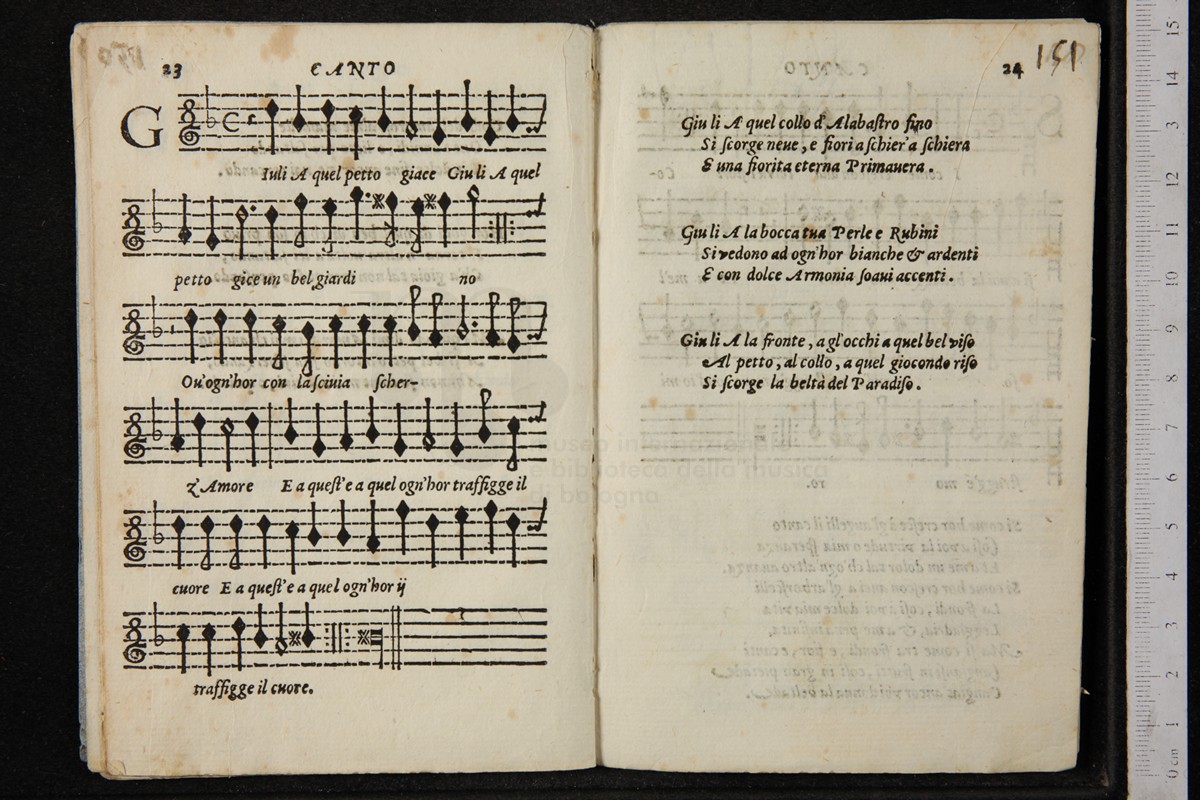 23
CANTO
G
Iuli A quel petto giace Giu li A quel
petto gice un bel giardi no
Ou'ogn'hor con lasciuia scher-
z'Amore E a quest'e a quel ogn'hor traffigge il
cuore E a quest'e a quel ogn'hor ij
traffigge il cuore.
24
151
Giu li A quel collo d'Alabastro fino
Si scorge neue, e fiori a schier'a schiera
E una fiorita eterna Primauera.
Giu li A la bocca tua Perle e Rubini
Si vedono ad ogn'hor bianche & ardenti
E con dolce Armonia soaui accenti.
Giu li A la fronte, a gl'occhi a quel bel viso
Al petto, al collo, a quel giocondo riso
Si scorge la beltà del Paradiso.
museo internazionale
e biblioteca della musica
di bologna
0 cm 1 2 3 4 5 6 7 8 9 10 11 12 13 14 15